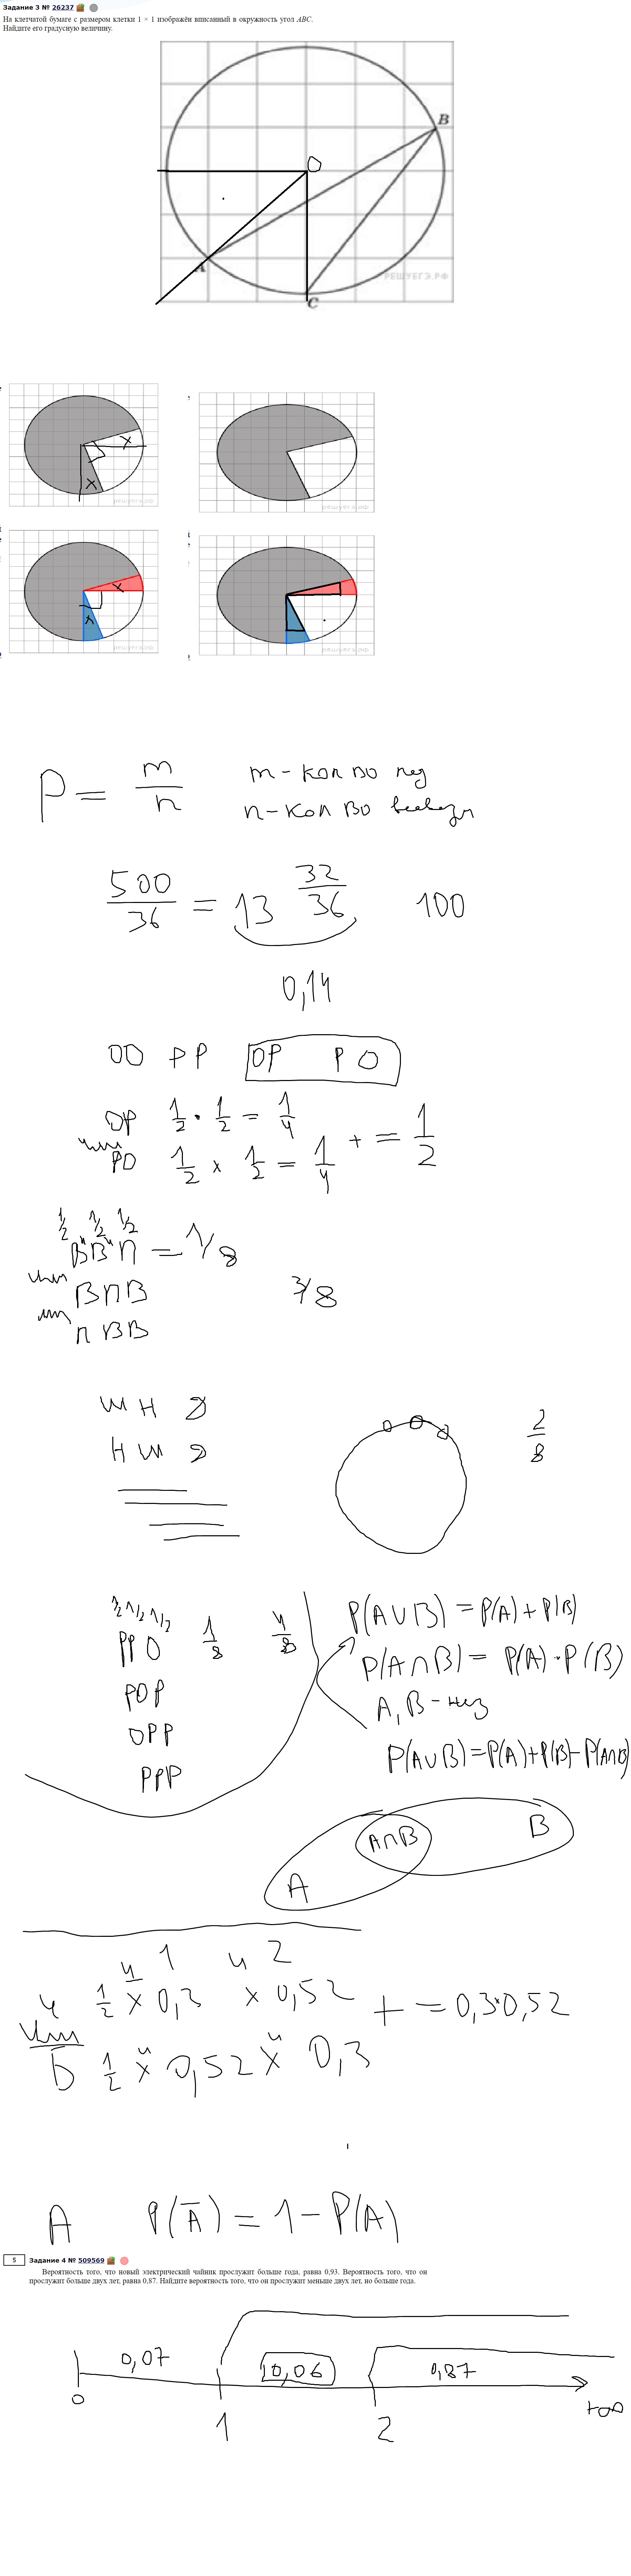 Задание 3 № 26237
На клетчатой бумаге с размером клетки 1 × 1 изображён вписанный в окружность угол ABC.
Найдите его градусную величину.
O
B
A
РЕШУЕГЭ.РФ
C
x
x
решуегэ.рф
решуегэ.рф
x
x
решуегэ.рф
решуегэ.рф
P = m/n
m - кол во
n - кол во
500/36 = 13 32/36 100
0,14
OO PP OP PO
OP 1/2 · 1/2 = 1/4
или + = 1/2
PO 1/2 × 1/2 = 1/4
1/2 1/2 1/2
ВВП = 1/8
или ВПВ 3/8
или ПВВ
Ш Н Д
Н Ш Д
2/8
1/2 1/2 1/2
PPO 1/8 4/8
POP
OPP
PPP
P(A∪B) = P(A) + P(B)
P(A∩B) = P(A) · P(B)
A, B - нез
P(A∪B) = P(A) + P(B) - P(A∩B)
A∩B
B
A
ч 1 ч 2
ч 1/2 × 0,3 × 0,52
или + = 0,3 · 0,52
Б 1/2 × 0,52 × 0,3
A P(A̅) = 1 - P(A)
5
Задание 4 № 509569
Вероятность того, что новый электрический чайник прослужит больше года, равна 0,93. Вероятность того, что он
прослужит больше двух лет, равна 0,87. Найдите вероятность того, что он прослужит меньше двух лет, но больше года.
0,07 0,06 0,87
0 1 2 +∞